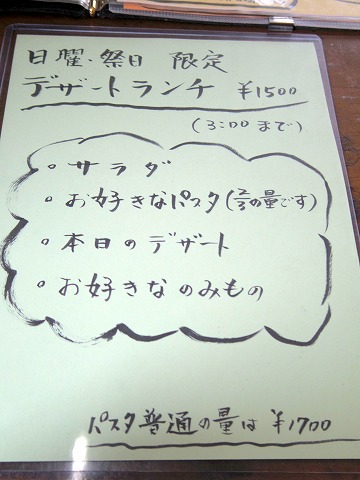 日曜・祭日 限定
デザートランチ ¥1500
(3:00まで)
。サラダ
。お好きなパスタ(2/3の量です)
。本日のデザート
。お好きなのみもの
パスタ普通の量は ¥1700